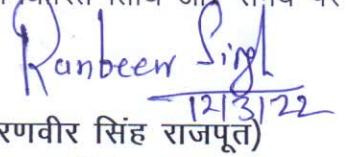 Ranbeer Singh
12/3/22
रणवीर सिंह राजपूत)